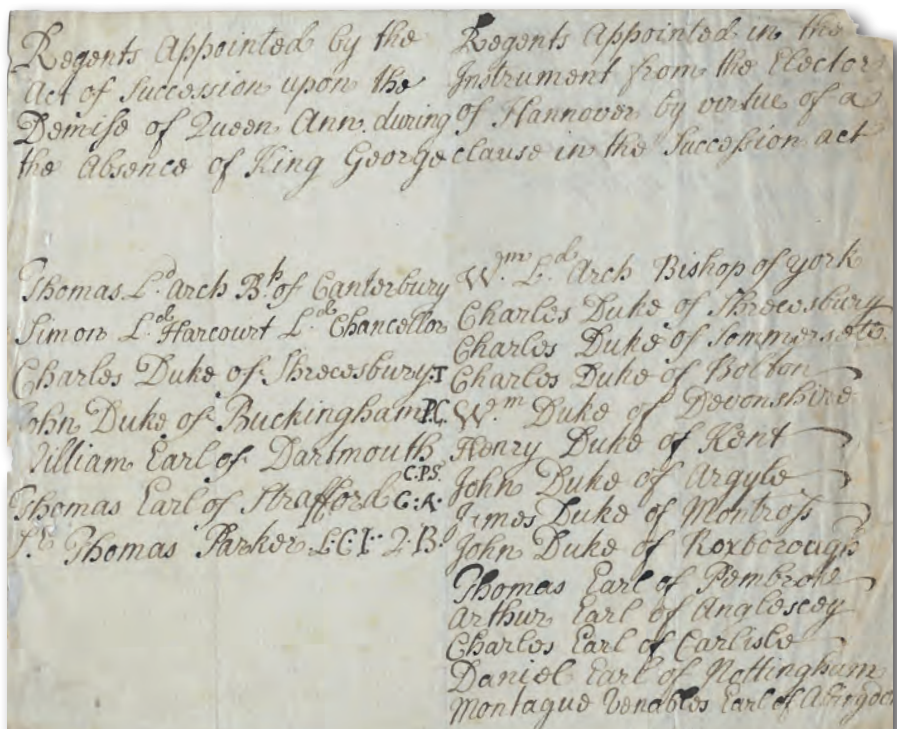 Regents Appointed by the
Act of Succession upon the
Demise of Queen Ann during
the Absence of King George
Thomas Ld. Arch Bp. of Canterbury
Simon Ld. Harcourt Ld. Chancellor
Charles Duke of Shrewsbury T
John Duke of Buckingham P.C.
William Earl of Dartmouth
C.P.S.
Thomas Earl of Strafford C:A:
Thomas Parker L:C:I: Q:B:
Regents Appointed in the
Instrument from the Elector
of Hannover by virtue of a
clause in the Succession act
Wm. Ld. Arch Bishop of york
Charles Duke of Shrewsbury
Charles Duke of Sommersett
Charles Duke of Bolton
Wm Duke of Devonshire
Henry Duke of Kent
John Duke of Argyle
James Duke of Montross
John Duke of Roxborough
Thomas Earl of Pembroke
Arthur Earl of Anglesey
Charles Earl of Carlisle
Daniel Earl of Nottingham
Montague Venables Earl of Abingdon